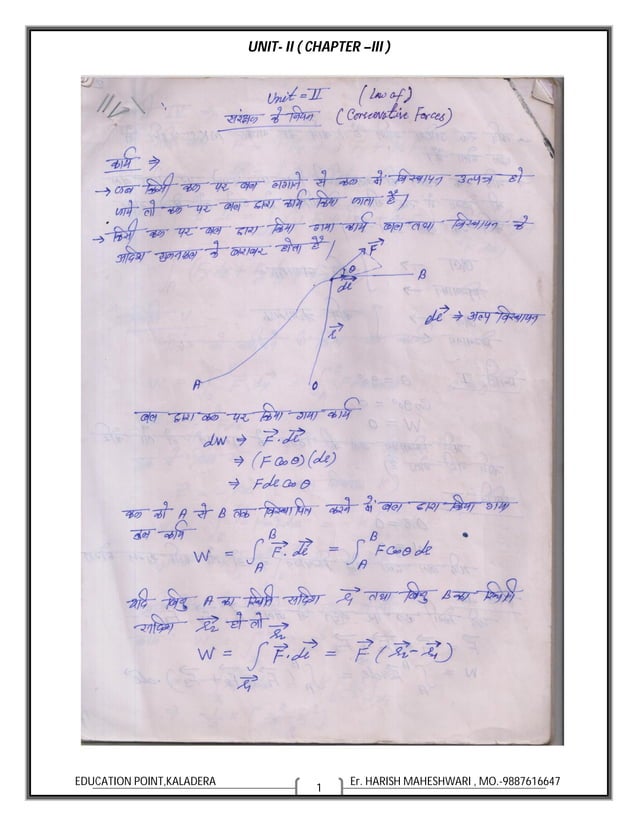 UNIT- II ( CHAPTER –III )
Unit = II ( Law of )
संरक्षण के नियम ( Conservative Forces )
कार्य ⇒
→ जब किसी कण पर बल लगाने से कण में विस्थापन उत्पन्न हो
जाये तो कण पर बल द्वारा कार्य किया जाता है।
→ किसी कण पर बल द्वारा किया गया कार्य बल तथा विस्थापन के
अदिश गुणनफल के बराबर होता है।
F⃗
θ
B
dl⃗
dl⃗ → अल्प विस्थापन
r⃗
A
O
बल द्वारा कण पर किया गया कार्य
dW ⇒ F⃗.dl⃗
⇒ (F Cosθ) (dl)
⇒ Fdl Cosθ
कण को A से B तक विस्थापित करने में बल द्वारा किया गया
कुल कार्य
W = ∫_A^B F⃗.dl⃗ = ∫_A^B F Cosθ dl
यदि बिन्दु A का स्थिति सदिश r⃗₁ तथा बिन्दु B का स्थिति
सदिश r⃗₂ हो तो
W = ∫_{r⃗₁}^{r⃗₂} F⃗.dl⃗ = F⃗ ( r⃗₂ - r⃗₁ )
EDUCATION POINT,KALADERA Er. HARISH MAHESHWARI , MO.-9887616647
1